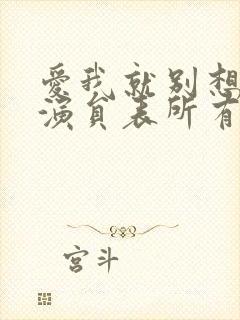 爱我就别想
演员表所有
宫斗